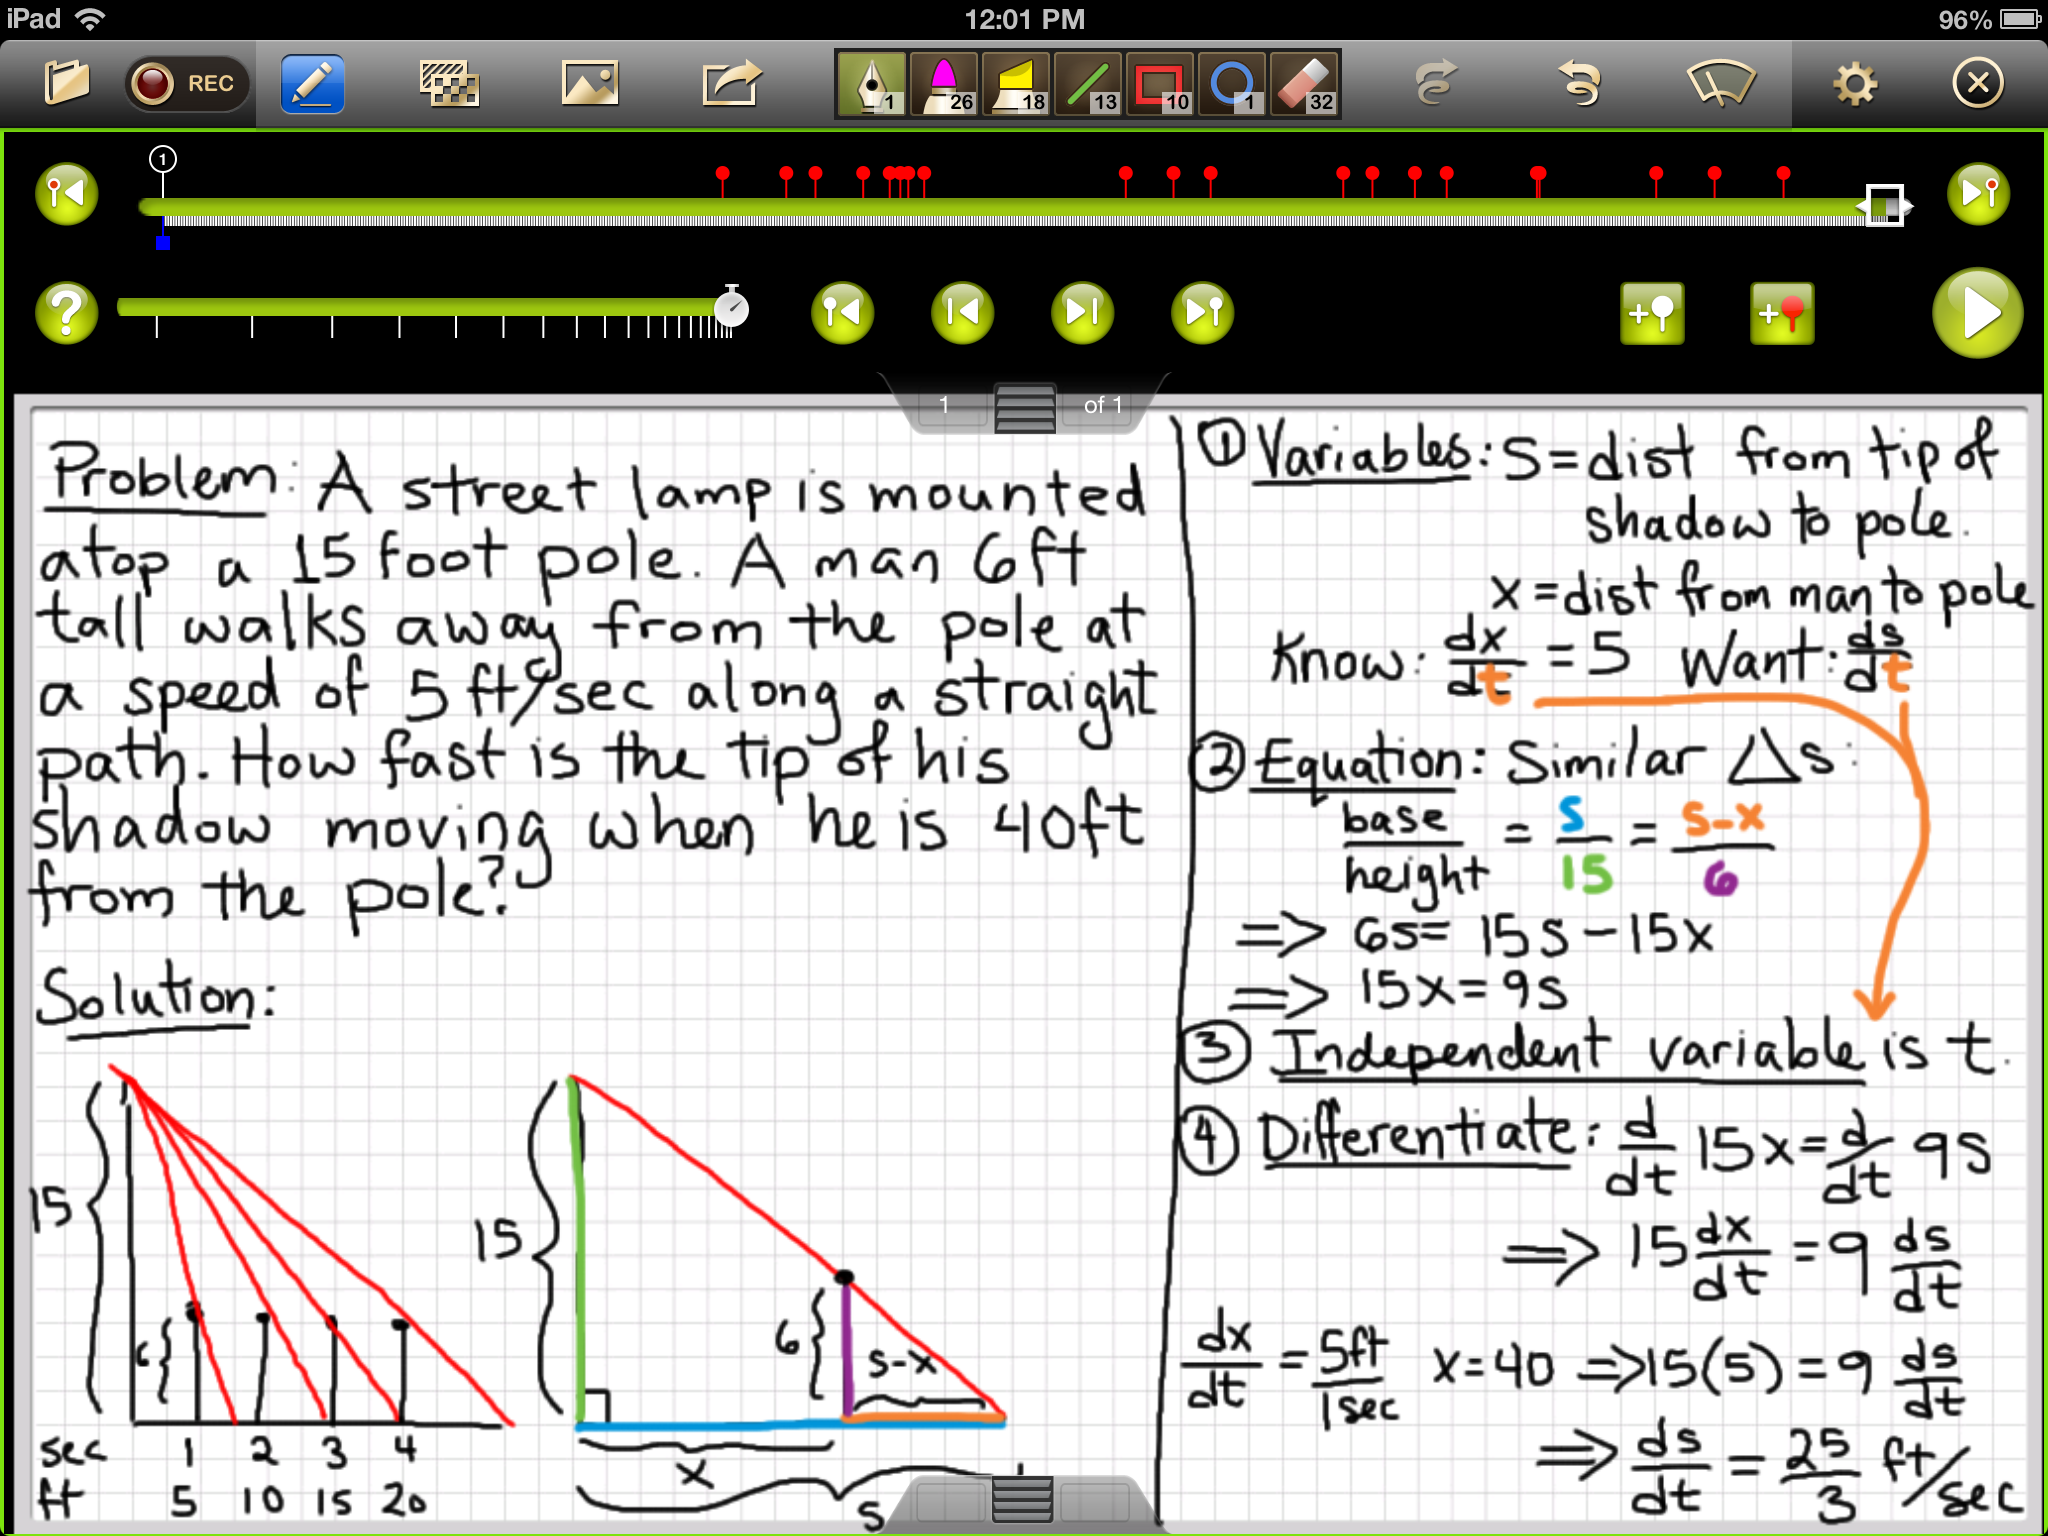 iPad 12:01 PM 96%
REC 1 26 18 13 10 1 32
1
?
1 of 1
Problem: A street lamp is mounted
atop a 15 foot pole. A man 6ft
tall walks away from the pole at
a speed of 5 ft/sec along a straight
path. How fast is the tip of his
shadow moving when he is 40ft
from the pole?
Solution:
15
6
sec 1 2 3 4
ft 5 10 15 20
15
6
s-x
x
s
① Variables: S = dist from tip of
shadow to pole.
x = dist from man to pole
Know: dx/dt = 5 Want: ds/dt
② Equation: Similar △s:
base/height = s/15 = s-x/6
⇒ 6s = 15s - 15x
⇒ 15x = 9s
③ Independent variable is t.
④ Differentiate: d/dt 15x = d/dt 9s
⇒ 15 dx/dt = 9 ds/dt
dx/dt = 5ft/1sec x = 40 ⇒ 15(5) = 9 ds/dt
⇒ ds/dt = 25/3 ft/sec